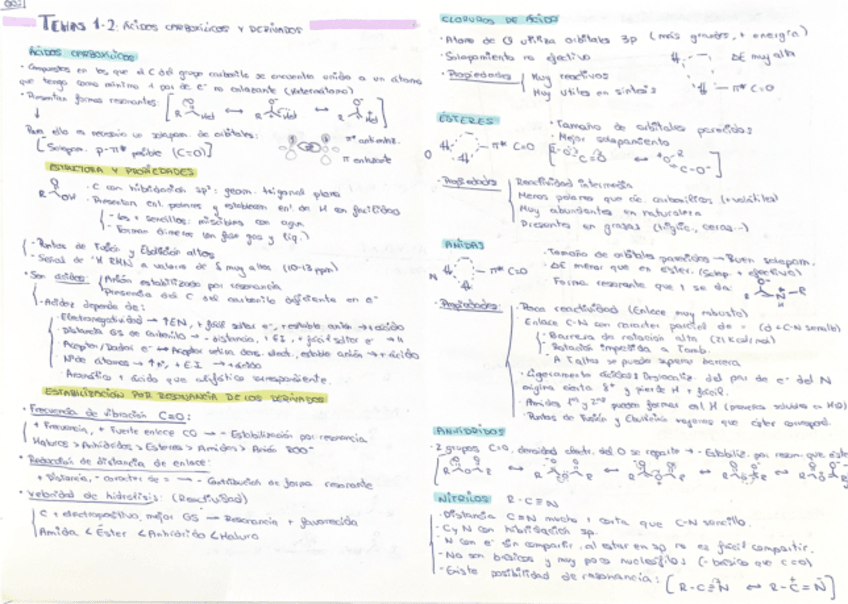 TEMAS 1-2: ÁCIDOS CARBOXÍLICOS Y DERIVADOS
ÁCIDOS CARBOXÍLICOS
· Compuestos en los que el C del grupo carbonilo se encuentra unido a un átomo
que tenga como mínimo 1 par de e⁻ no enlazante (Heteroátomo)
· Presentan formas resonantes:
Para ello es necesario un solapam. de orbitales:
[Solapam. p-π* posible (C=O)]
π* antienlaz.
π enlazante
ESTRUCTURA Y PROPIEDADES
R OH
· C con hibridación sp²: geom. trigonal plana
· Presentan enl. polares y establecen enl. de H con facilidad
- Los + sencillos: miscibles con agua
- Forman dímeros (en fase gas y líq.)
- Puntos de Fusión y Ebullición altos
- Señal de ¹H RMN a valores de δ muy altos (10-13 ppm)
· Son ácidos: Anión estabilizado por resonancia
Presencia del C del carbonilo deficiente en e⁻
· Acidez depende de:
· Electronegatividad → ↑EN, + fácil
· Distancia GS de carbonilo → - distancia, ↑E.I.
· Nº de átomos → ↑nº, + E.I. → + ácido
· Aromático + ácido que alifático correspondiente.
ESTABILIZACIÓN POR RESONANCIA DE LOS DERIVADOS
· Frecuencia de vibración C=O:
+ Frecuencia, + Fuerte enlace CO → - Estabilización por resonancia
Haluros > Anhídridos > Esteres > Amidas > Anión ROO⁻
· Reducción de distancia de enlace:
+ Distancia, - caracter de = → - Contribución de forma resonante
· Velocidad de hidrólisis: (Reactividad)
C + electropositivo, mejor GS → Resonancia + favorecida
Amida < Éster < Anhídrido < Haluro
CLORUROS DE ÁCIDO
· Átomo de Cl utiliza orbitales 3p (más grandes, + energía)
· Solapamiento no efectivo
ΔE muy alta
· Propiedades Muy reactivos
Muy útiles en síntesis
π* C=O
ÉSTERES
· Tamaño de orbitales parecidos
· Mejor solapamiento
O π* C=O
· Propiedades Reactividad intermedia
Menos polares que ác. carboxílicos (+volátiles)
Muy abundantes en naturaleza
Presentes en grasas (triglic., ceras...)
AMIDAS
· Tamaño de orbitales parecidos → Buen solapam.
· ΔE menor que en éster. (Solap. + efectivo)
N π* C=O
Forma resonante que + se da:
· Propiedades · Poca reactividad (Enlace muy robusto)
· Enlace C-N con caracter parcial de = (d < C-N sencillo)
- Barrera de rotación alta (21 Kcal/mol)
- Rotación impedida a Tamb.
· A T altas se puede superar barrera
· Ligeramente ácidas: Deslocaliz. del par de e⁻ del N
origina cierta δ⁺ y pierde H + fácil.
· Amidas 1ᵃ y 2ᵃ pueden formar enl. H
· Puntos de Fusión y Ebullición mayores que éster correspond.
ANHÍDRIDOS
· 2 grupos C=O, densidad electr. del O se reparte → - Estabiliz. por reson. que éster
NITRILOS R-C≡N
· Distancia C≡N mucho + corta que C-N sencillo.
· C y N con hibridación sp.
· N con e⁻ sin compartir, al estar en sp no es fácil compartir.
· No son básicos y muy poco nucleófilos (- básico que C=O)
· Existe posibilidad de resonancia: [R-C≡N ↔ R-C=N]